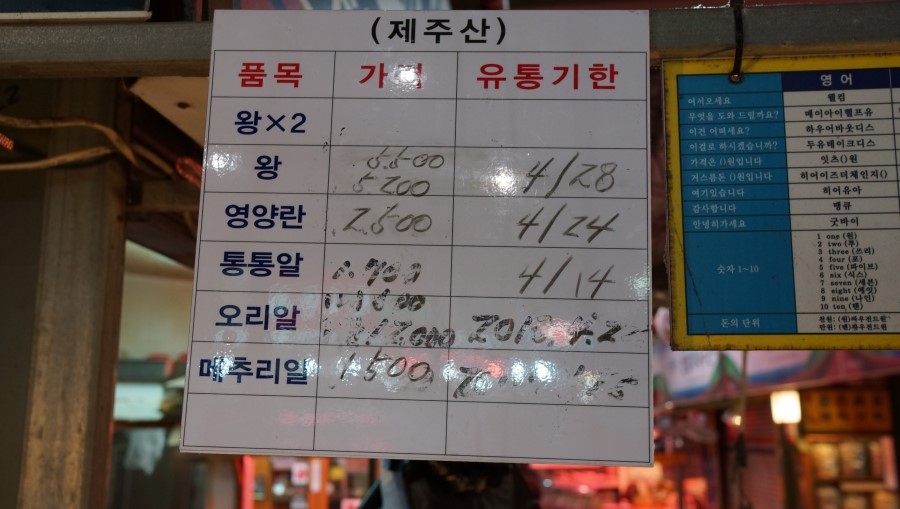 (제주산)
품목 가격 유통기한
왕×2
왕 5500 5200 4/28
영양란 2500 4/24
통통알 4/14
오리알
메추리알 1500
영어
어서오세요 웰컴
무엇을 도와 드릴까요? 메이아이헬프유
이건 어떠세요? 하우어바웃디스
이걸로 하시겠습니까? 두유테이크디스
가격은 ()원입니다 잇츠()원
거스름돈 ()원입니다 히어이즈더체인지()
여기있습니다 히어유아
감사합니다 땡큐
안녕히가세요 굿바이
숫자 1~10
1 one (원)
2 two (투)
3 three (쓰리)
4 four (포)
5 five (파이브)
6 six (식스)
7 seven (세븐)
8 eight (에잇)
9 nine (나인)
10 ten (텐)
돈의 단위